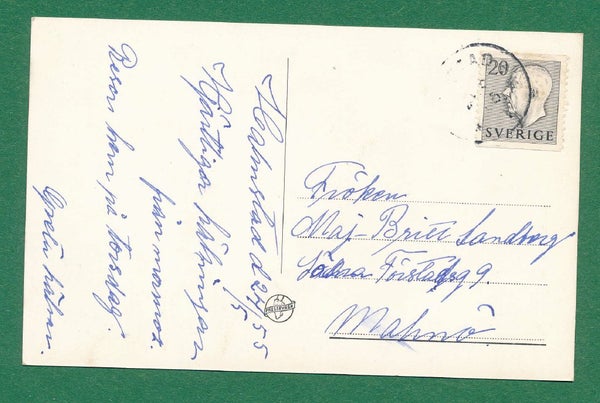 Halmstad d 24/5 55
Hjärtliga hälsningar
från mamma.
kom på torsdag.
Greta hälsar.
20
SVERIGE
Fröken
Maj-Britt Sandberg
Södra Förstadsg 9.
Malmö